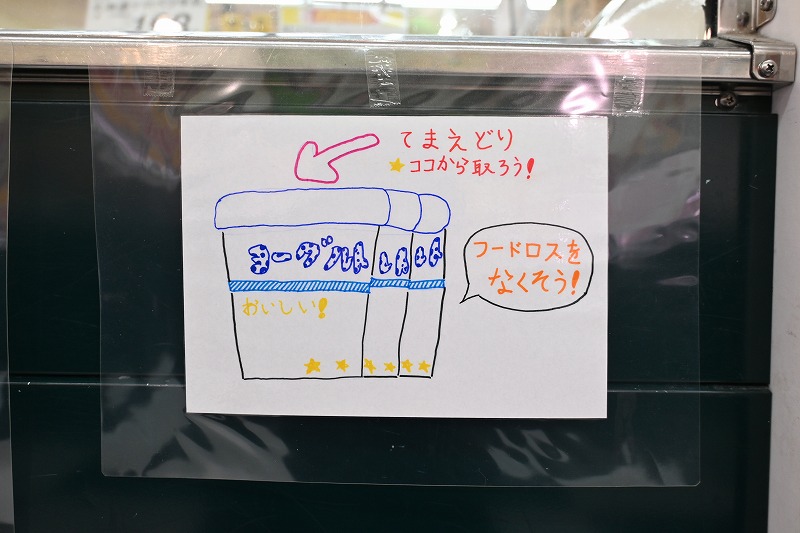 てまえどり
★ココから取ろう!
ヨーグルト
ルト
ルト
おいしい!
フードロスを
なくそう!